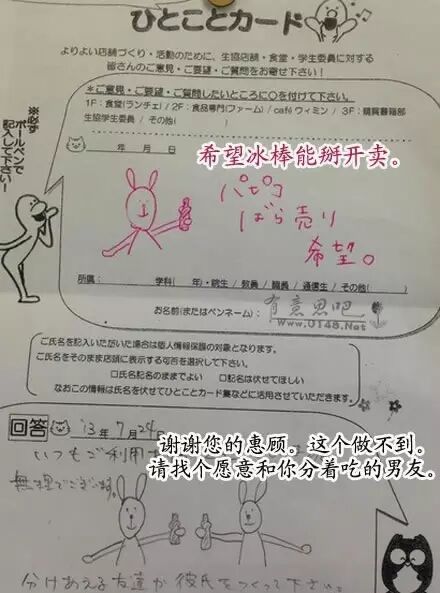 ひとことカード
よりよい店舗づくり・活動のために、生協店舗・食堂・学生委員に対する
皆さんのご意見・ご要望・ご質問をお寄せ下さい!
*ご意見・ご要望・ご質問したいところに○を付けて下さい。
1F:食堂(ランチェ)/2F:食品専門(ファーム)/café ヴィミィン/3F:購買書籍部
生協学生委員/その他( )
※必ず
ボールペンで
記入して下さい!
年 月 日
希望冰棒能掰开卖。
パピコ
ばら売り
希望。
所属: 学科( 年)・院生/教員/職員/通信生/その他( )
お名前(またはペンネーム):
有意思吧
www.0148.Net
ご氏名を記入いただいた場合は個人情報保護の対象となります。
ご氏名をそのまま店頭に表示する可否を選択して下さい。
□氏名記名のままでよい □記名は伏せてほしい
なおこの情報は氏名を伏せてひとことカード集などに活用させていただきます。
回答 '13年7月24
谢谢您的惠顾。这个做不到。
请找个愿意和你分着吃的男友。
いつもご利用
無理でございます。
分けあえる友達か彼氏をつくって下さい。